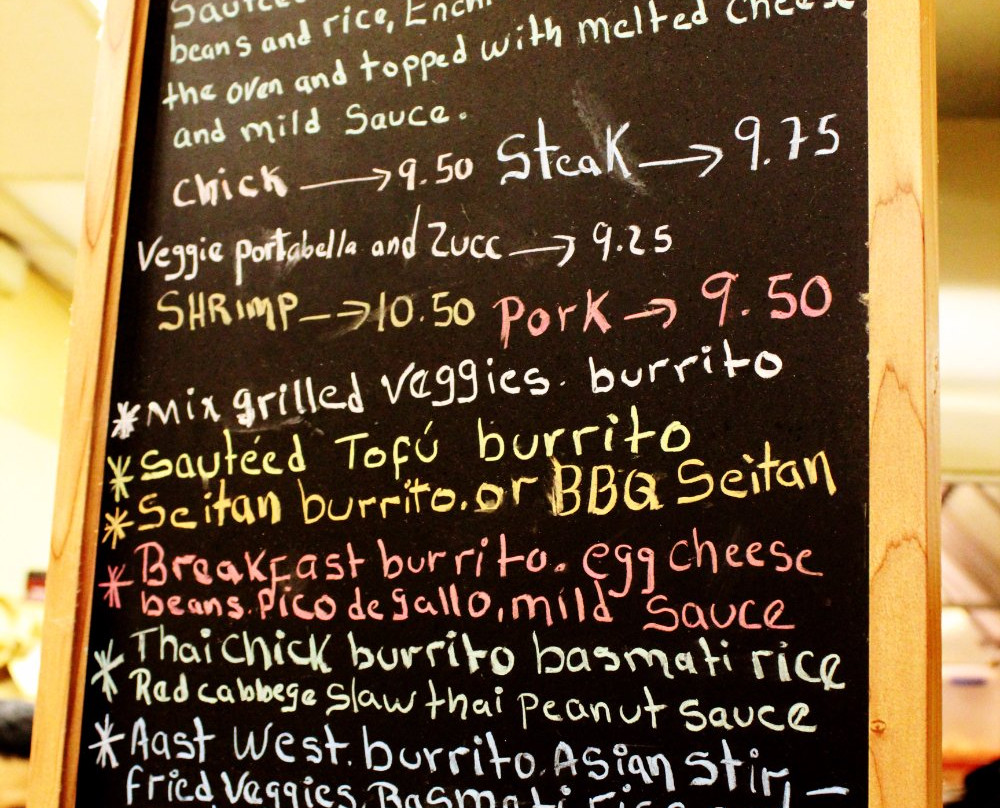 Sautee
beans and rice, Ench
the oven and topped with melted cheese
and mild Sauce.
Chick → 9.50 Steak → 9.75
Veggie portabella and Zucc → 9.25
SHRIMP → 10.50 Pork → 9.50
* Mix grilled veggies. burrito
* Sautéed Tofú burrito
* Seitan burrito. or BBQ Seitan
* Breakfast burrito. egg cheese
beans. Pico de gallo, mild Sauce
* Thai chick burrito basmati rice
Red cabbege Slaw thai Peanut sauce
* Aast West. burrito. Asian stir,—
fried Veggies, Basmati rice